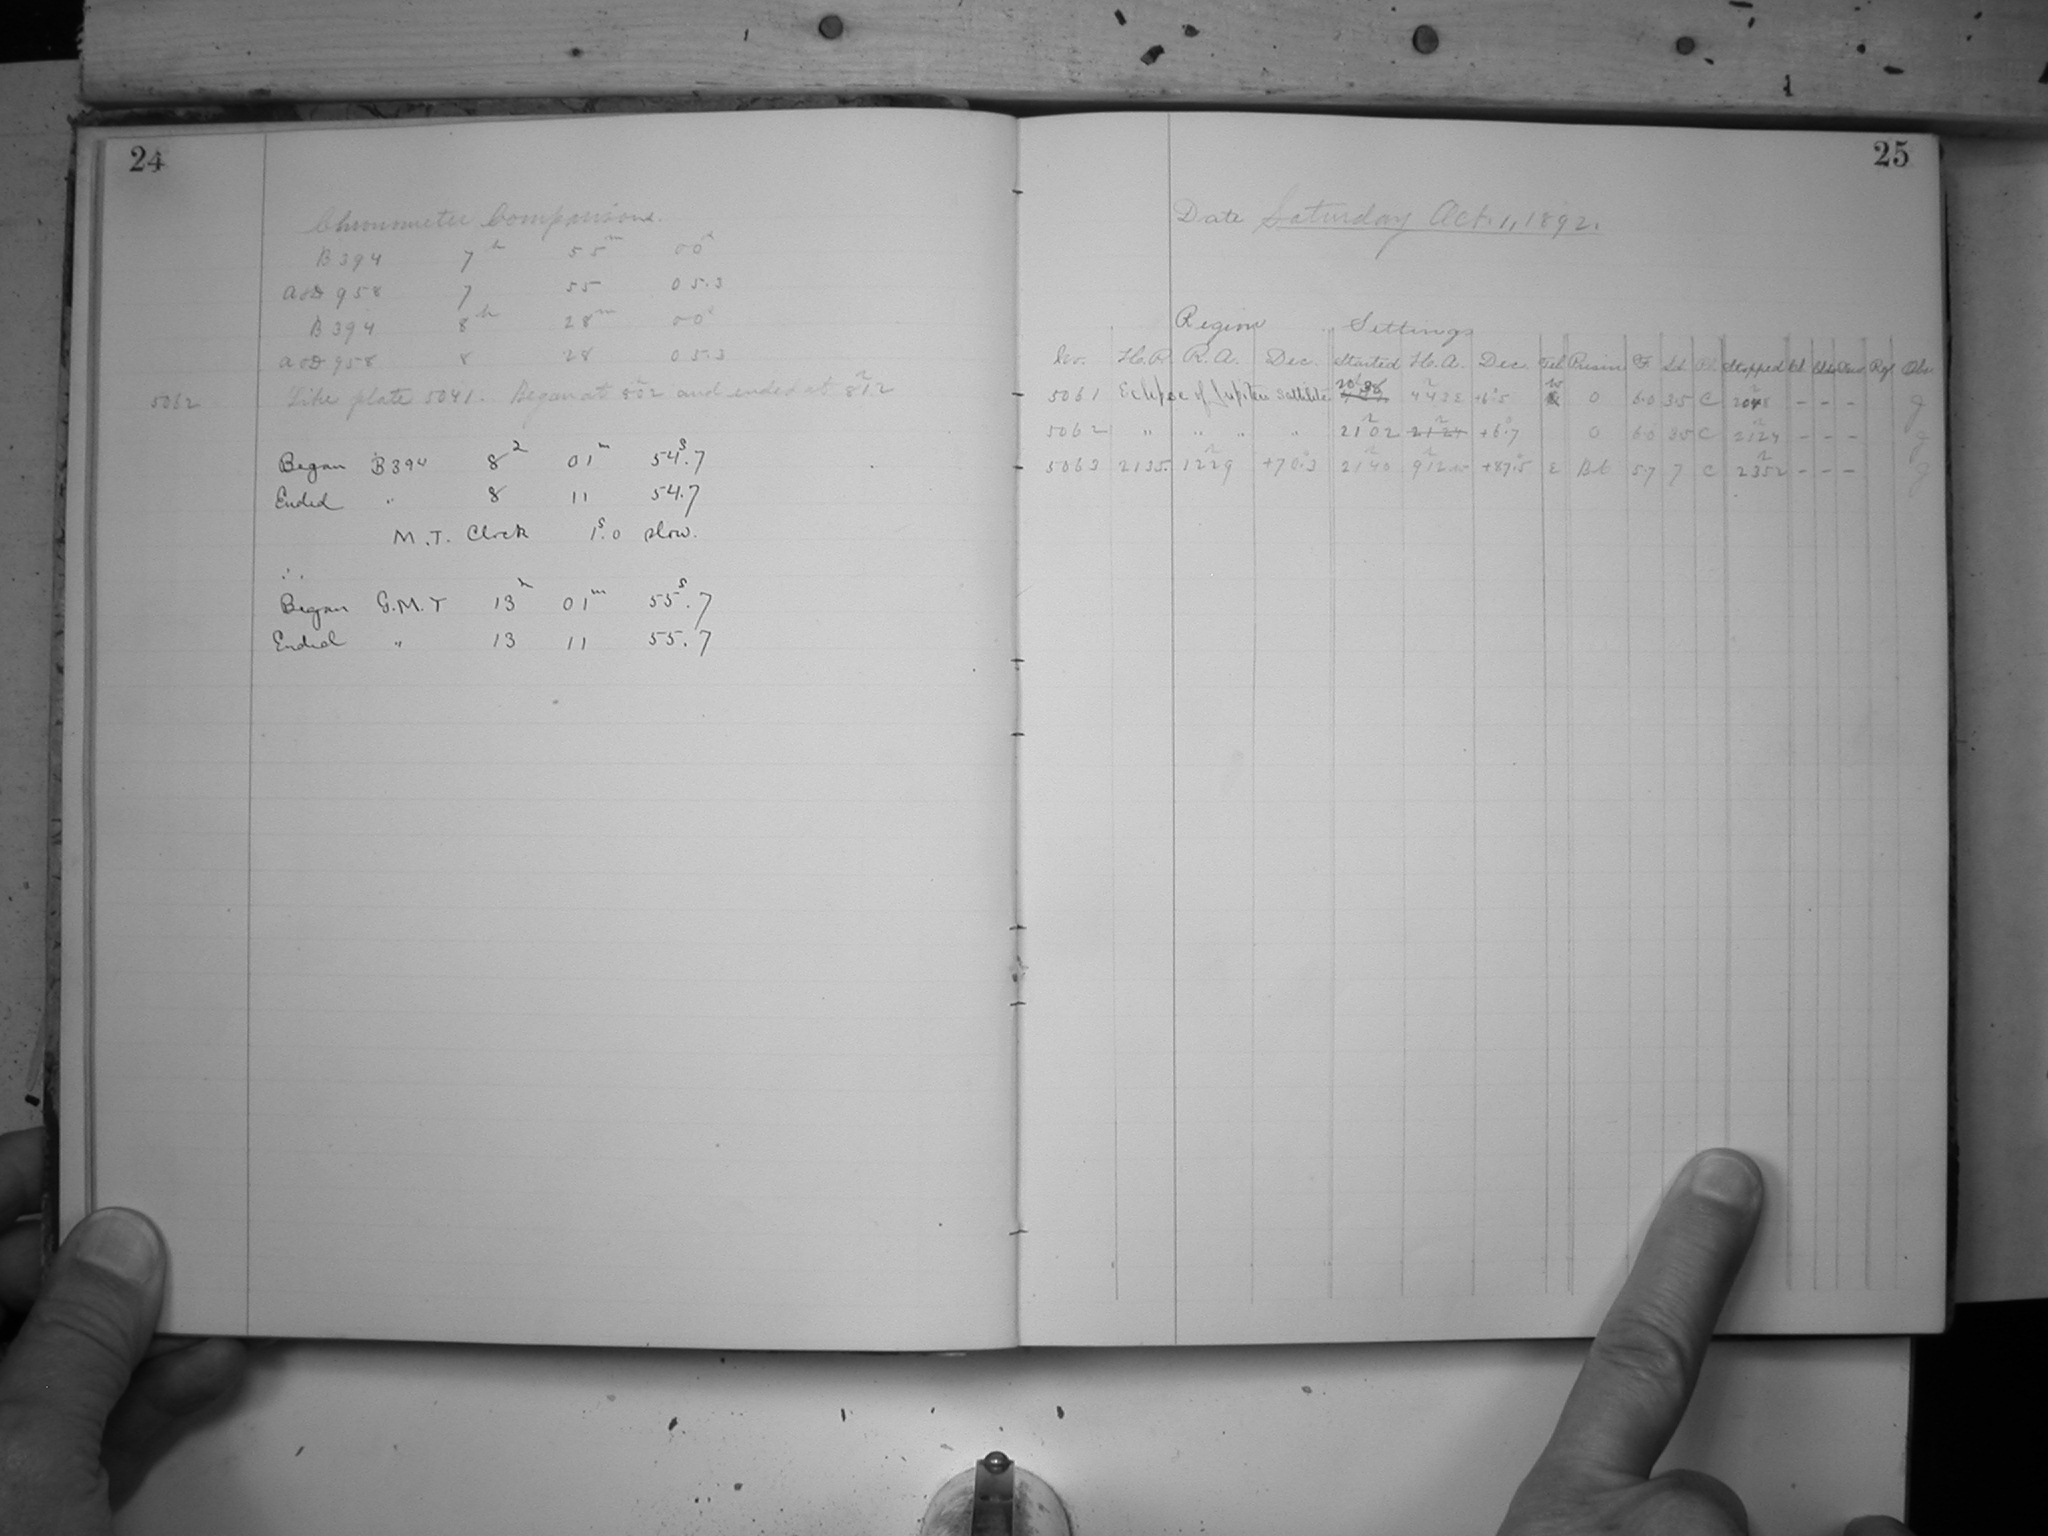 24
Chronometer Comparisons.
B 394 7h 55m 00s
A&D 958 7 55 05.3
B 394 8h 28m 00s
A&D 958 8 28 05.3
5062 Like plate 5041. Began at 8h02 and ended at 8h12
Began B 394 8h 01m 54s.7
Ended " 8 11 54.7
M.T. Clock 1s.0 slow.
∴
Began G.M.T 13h 01m 55s.7
Ended " 13 11 55.7
25
Date Saturday Oct. 1, 1892.
Region Settings
No. H.P. R.A. Dec. Started H.A. Dec. Tel Prism F. Pl. Stopped Cl. Rg. Obs
5061 Eclipse of Jupiter Satellite 20h38 +6°.5 0 6.0 35 C - - - g
5062 " " " " 21h02 21h24 +6°.7 0 6.0 35 C 21h24 - - - g
5063 2135. 12h29 +70°.3 21h40 +87°.5 E Bt 5.7 7 C 23h52 - - - g